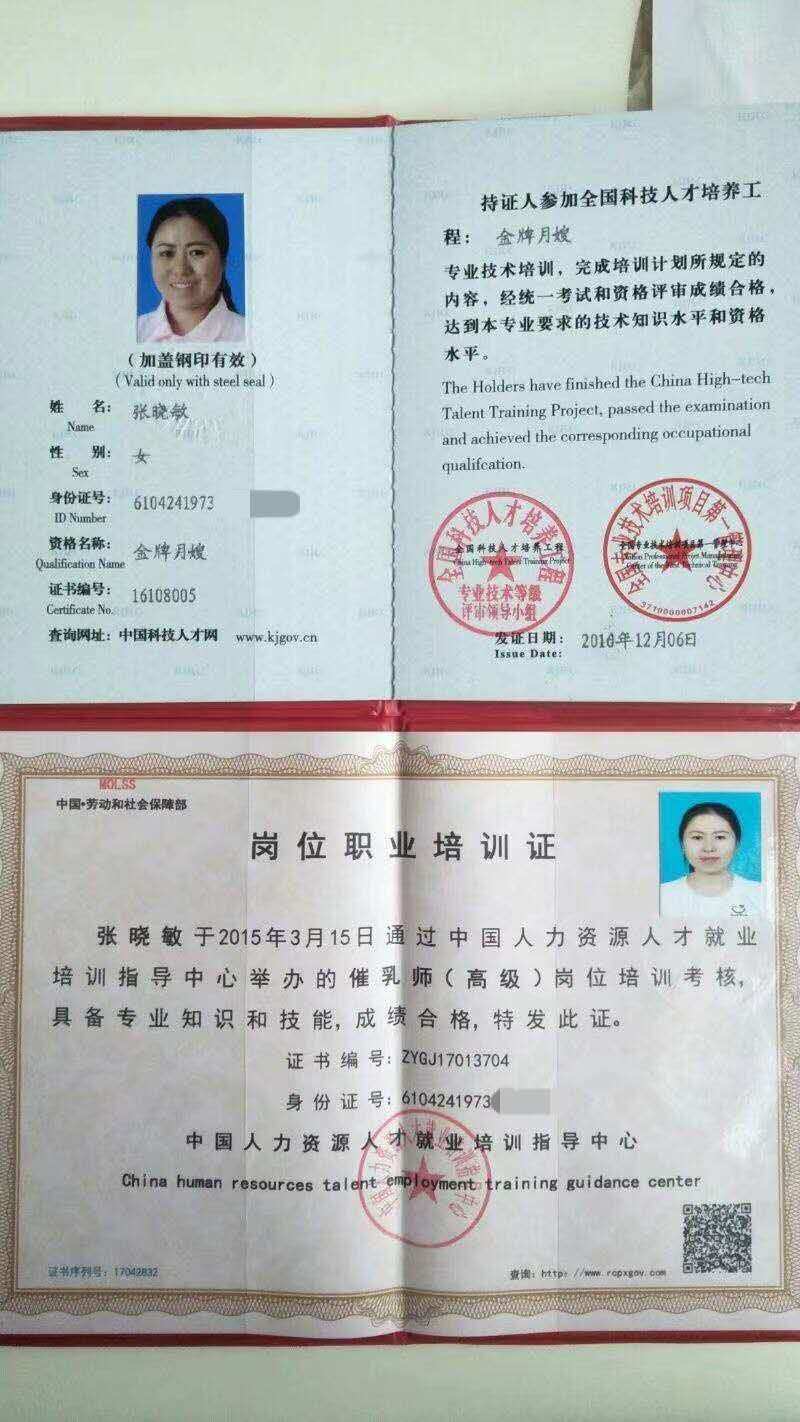 （加盖钢印有效）
（Valid only with steel seal）
姓 名： 张晓敏
Name
性 别： 女
Sex
身份证号： 6104241973
ID Number
资格名称： 金牌月嫂
Qualification Name
证书编号： 16108005
Certificate No.
查询网址：中国科技人才网 www.kjgov.cn
持证人参加全国科技人才培养工
程： 金牌月嫂
专业技术培训，完成培训计划所规定的
内容，经统一考试和资格评审成绩合格，
达到本专业要求的技术知识水平和资格
水平。
The Holders have finished the China High-tech
Talent Training Project, passed the examination
and achieved the corresponding occupational
qualifcation.
全国科技人才培养工程
全国科技人才培养工程
China High-tech Talent Training Project
专业技术等级
评审领导小组
全国专业技术培训项目第一管理中心
全国专业技术培训项目第一管理中心
3710000007142
发证日期： 2016年12月06日
Issue Date:
MOLSS
中国·劳动和社会保障部
岗位职业培训证
张晓敏于2015年3月15日通过中国人力资源人才就业
培训指导中心举办的催乳师（高级）岗位培训考核，
具备专业知识和技能，成绩合格，特发此证。
证书编号：ZYGJ17013704
身份证号：6104241973
中国人力资源人才就业培训指导中心
China human resources talent employment training guidance center
证书序列号：17042832
查询：http://www.rcpxgov.com